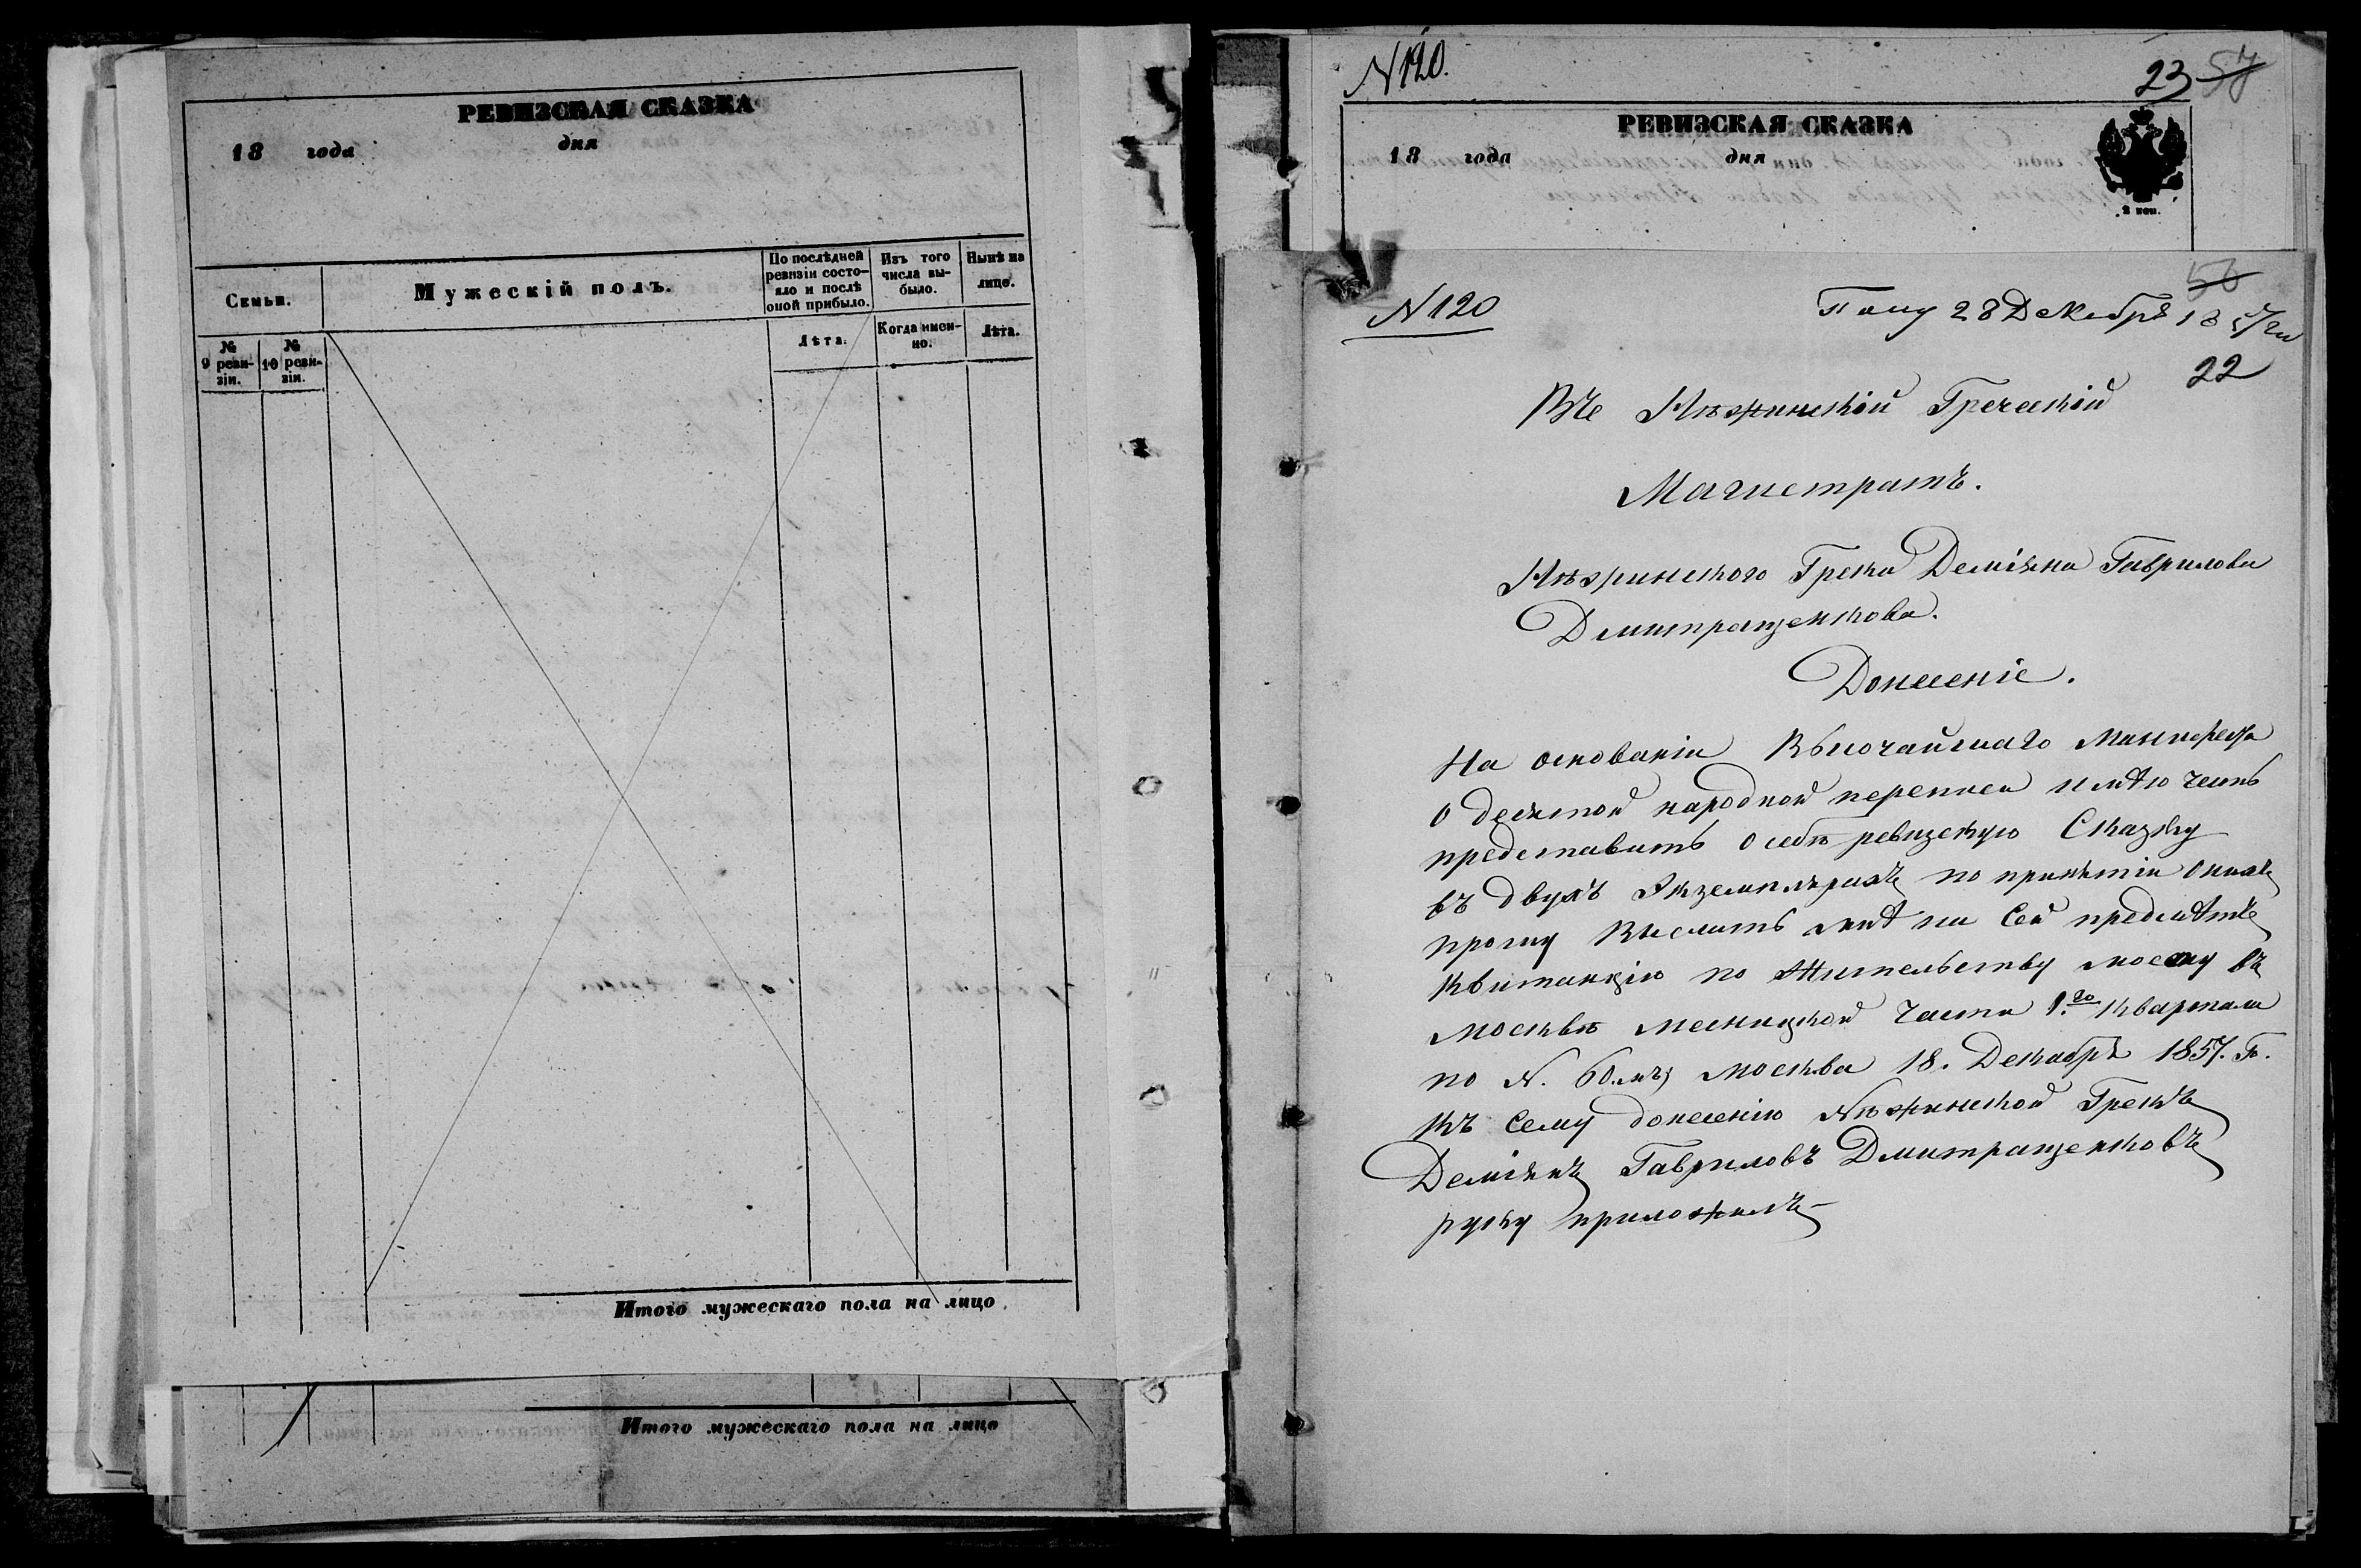 РЕВИЗСКАЯ СКАЗКА
18 года дня
Семьи.
Мужескій полъ.
По послѣдней ревизіи состо-яло и послѣ оной прибыло.
Изъ того числа вы-было.
Нынѣ на лице.
№ 9 реви-зіи.
№ 10 реви-зіи.
Лѣта.
Когда имен-но.
Лѣта.
Итого мужескаго пола на лицо
Итого мужескаго пола на лицо
N 120.
23 57
РЕВИЗСКАЯ СКАЗКА
18 года дня
2 коп.
56
N 120
Полу 28 Декабря 1857 г
22
Въ Нѣжинскій Греческій
Магистратъ.
Нѣжинского Грека Деміяна Гаврилова
Дмитращенкова.
Донесеніе.
На основаніи Высочайшаго Манифеста
о десятой народной переписи имѣю честь
представить о себѣ ревизскую Сказку
въ двухъ Экземплярахъ по принятіи онихъ
прошу Выслать мнѣ на Сей предмѣтъ
квитанцію по Жительству моему въ
москвѣ месницкой части 1го квартала
по N. 60.мъ, москва 18. Декабря 1857. Г.
къ Сему донесенію Нѣжинской Грекъ
Деміянъ Гавриловъ Дмитращенковъ
руку приложилъ